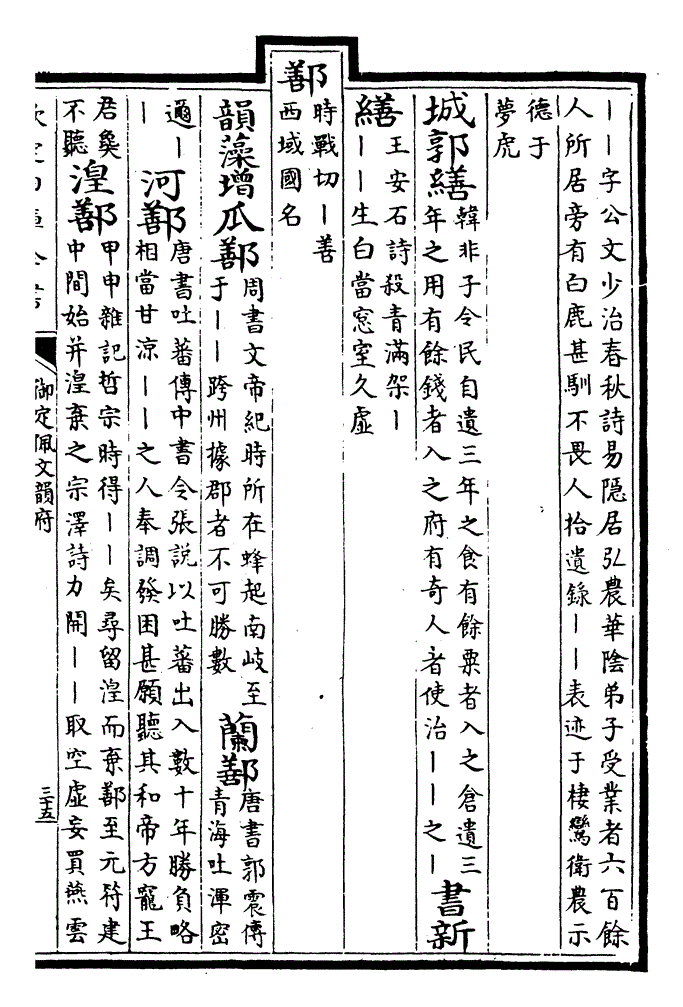 丨丨字公文少治春秋詩易隱居弘農華陰弟子受業者六百餘
人所居旁有白鹿甚馴不畏人拾遺錄丨丨表迹于棲鸞衛農示
德于
夢虎
城郭繕
韓非子令民自遺三年之食有餘粟者入之倉遺三
年之用有餘錢者入之府有奇人者使治丨丨之丨
書新
繕
王安石詩殺青滿架丨
丨丨生白當窓室久虛
鄯
時戰切丨善
西域國名
韻藻增瓜鄯
周書文帝紀時所在蜂起南岐至
于丨丨跨州據郡者不可勝數
蘭鄯
唐書郭震傳
青海吐渾密
邇丨
河鄯
唐書吐蕃傳中書令張說以吐蕃出入數十年勝負略
相當甘涼丨丨之人奉調發困甚願聽其和帝方寵王
丨
君㚟
不聽
湟鄯
甲申雜記哲宗時得丨丨矣尋留湟而棄鄯至元符建
中間始并湟棄之宗澤詩力開丨丨取空虛妄買燕雲
御定佩文韻府
三十五